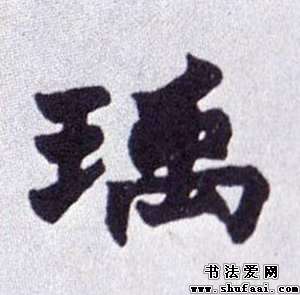 瑀
书法爱网
www.shufaai.com